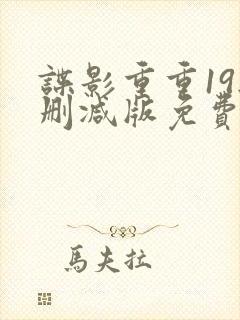 諜影重重19
删減版免費
馬夫拉